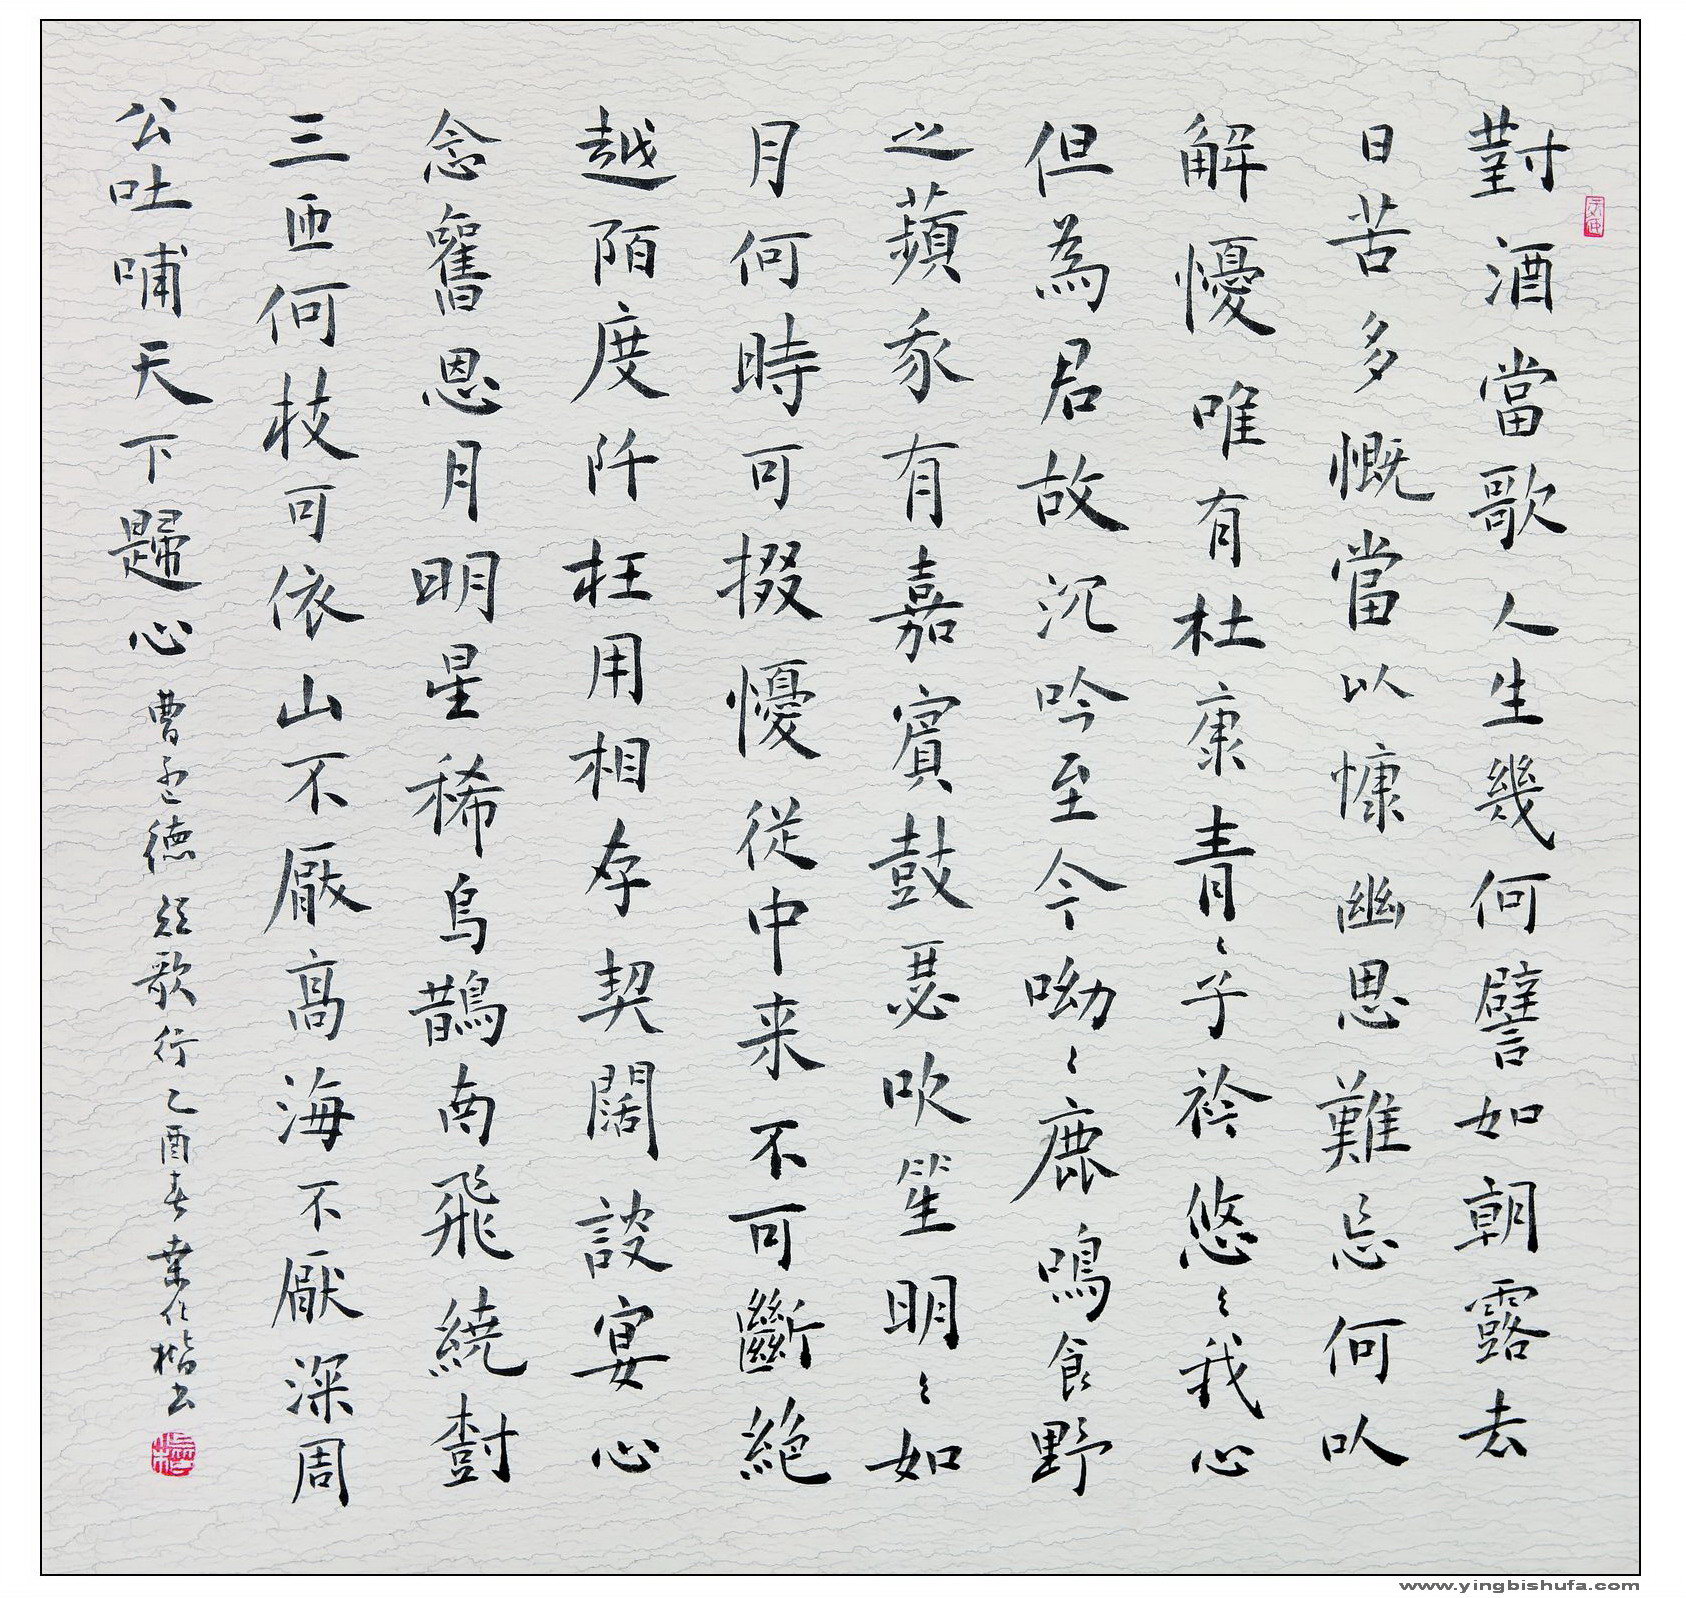 對酒當歌人生幾何譬如朝露去
日苦多慨當以慷幽思難忘何以
解憂唯有杜康青〻子衿悠〻我心
但為君故沉吟至今呦〻鹿鳴食野
之蘋我有嘉賓鼓瑟吹笙明〻如
月何時可掇憂從中来不可斷絕
越陌度阡枉用相存契闊談宴心
念舊恩月明星稀烏鵲南飛繞樹
三匝何枝可依山不厭高海不厭深周
公吐哺天下歸心 曹孟德短歌行乙酉春業作楷书
www.yingbishufa.com